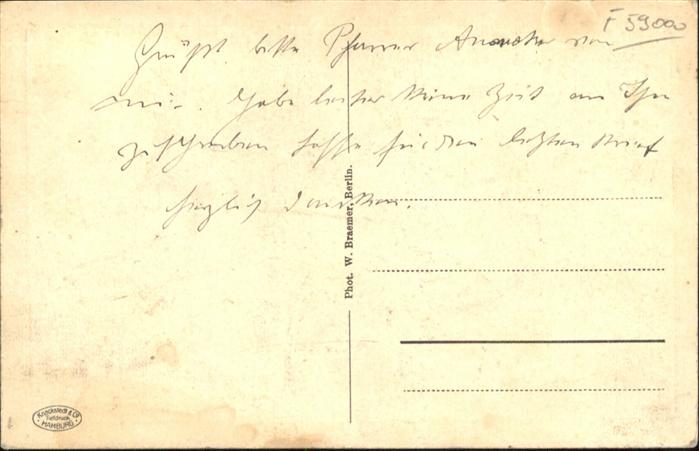 F 59000
Grüßt bitte Pfarrer von
mir. Habe leider keine Zeit um Ihm
zu schreiben lasse für den letzten Brief
herzlich danken.
Phot. W. Braemer, Berlin.
Knackstedt & Co
Tiefdruck
HAMBURG